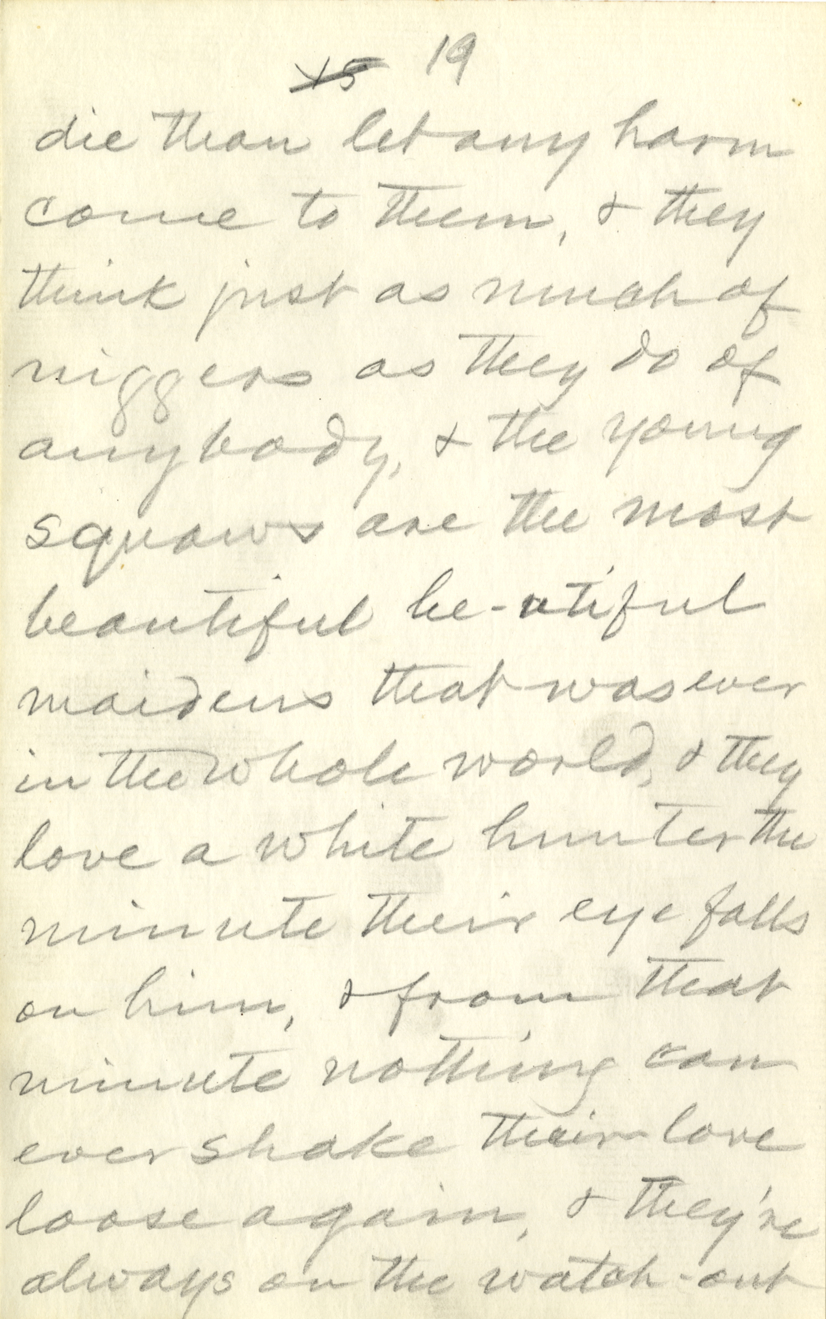 19
die than let any harm
come to them, & they
think just as much of
niggers as they do of
anybody, & the young
squaws are the most
beautiful be-utiful
maidens that was ever
in the whole world, & they
love a white hunter the
minute their eye falls
on him, & from that
minute nothing can
ever shake their love
loose again, & they're
always on the watch-out